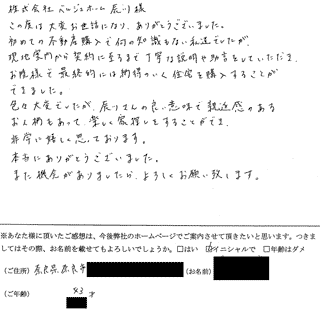 株式会社 ベルジュホーム 辰川様
この度は大変お世話になり、ありがとうございました。
初めての不動産購入で何の知識もない私達でしたが、
現地案内から契約に至るまで丁寧な説明や助言をしていただき、
お陰様で最終的には納得のいく住宅を購入することが
できました。
色々大変でしたが、辰川さんの良い意味で親近感のある
お人柄もあって、楽しく家探しをすることができ、
非常に嬉しく思っております。
本当にありがとうございました。
また機会がありましたら、よろしくお願い致します。
※あなた様に頂いたご感想は、今後弊社のホームページでご案内させて頂きたいと思います。つきま
してはその際、お名前を載せてもよろしいでしょうか。□はい ☑イニシャルで □年齢はダメ
(ご住所) 奈良県奈良市 (お名前)
(ご年齢) 43 才